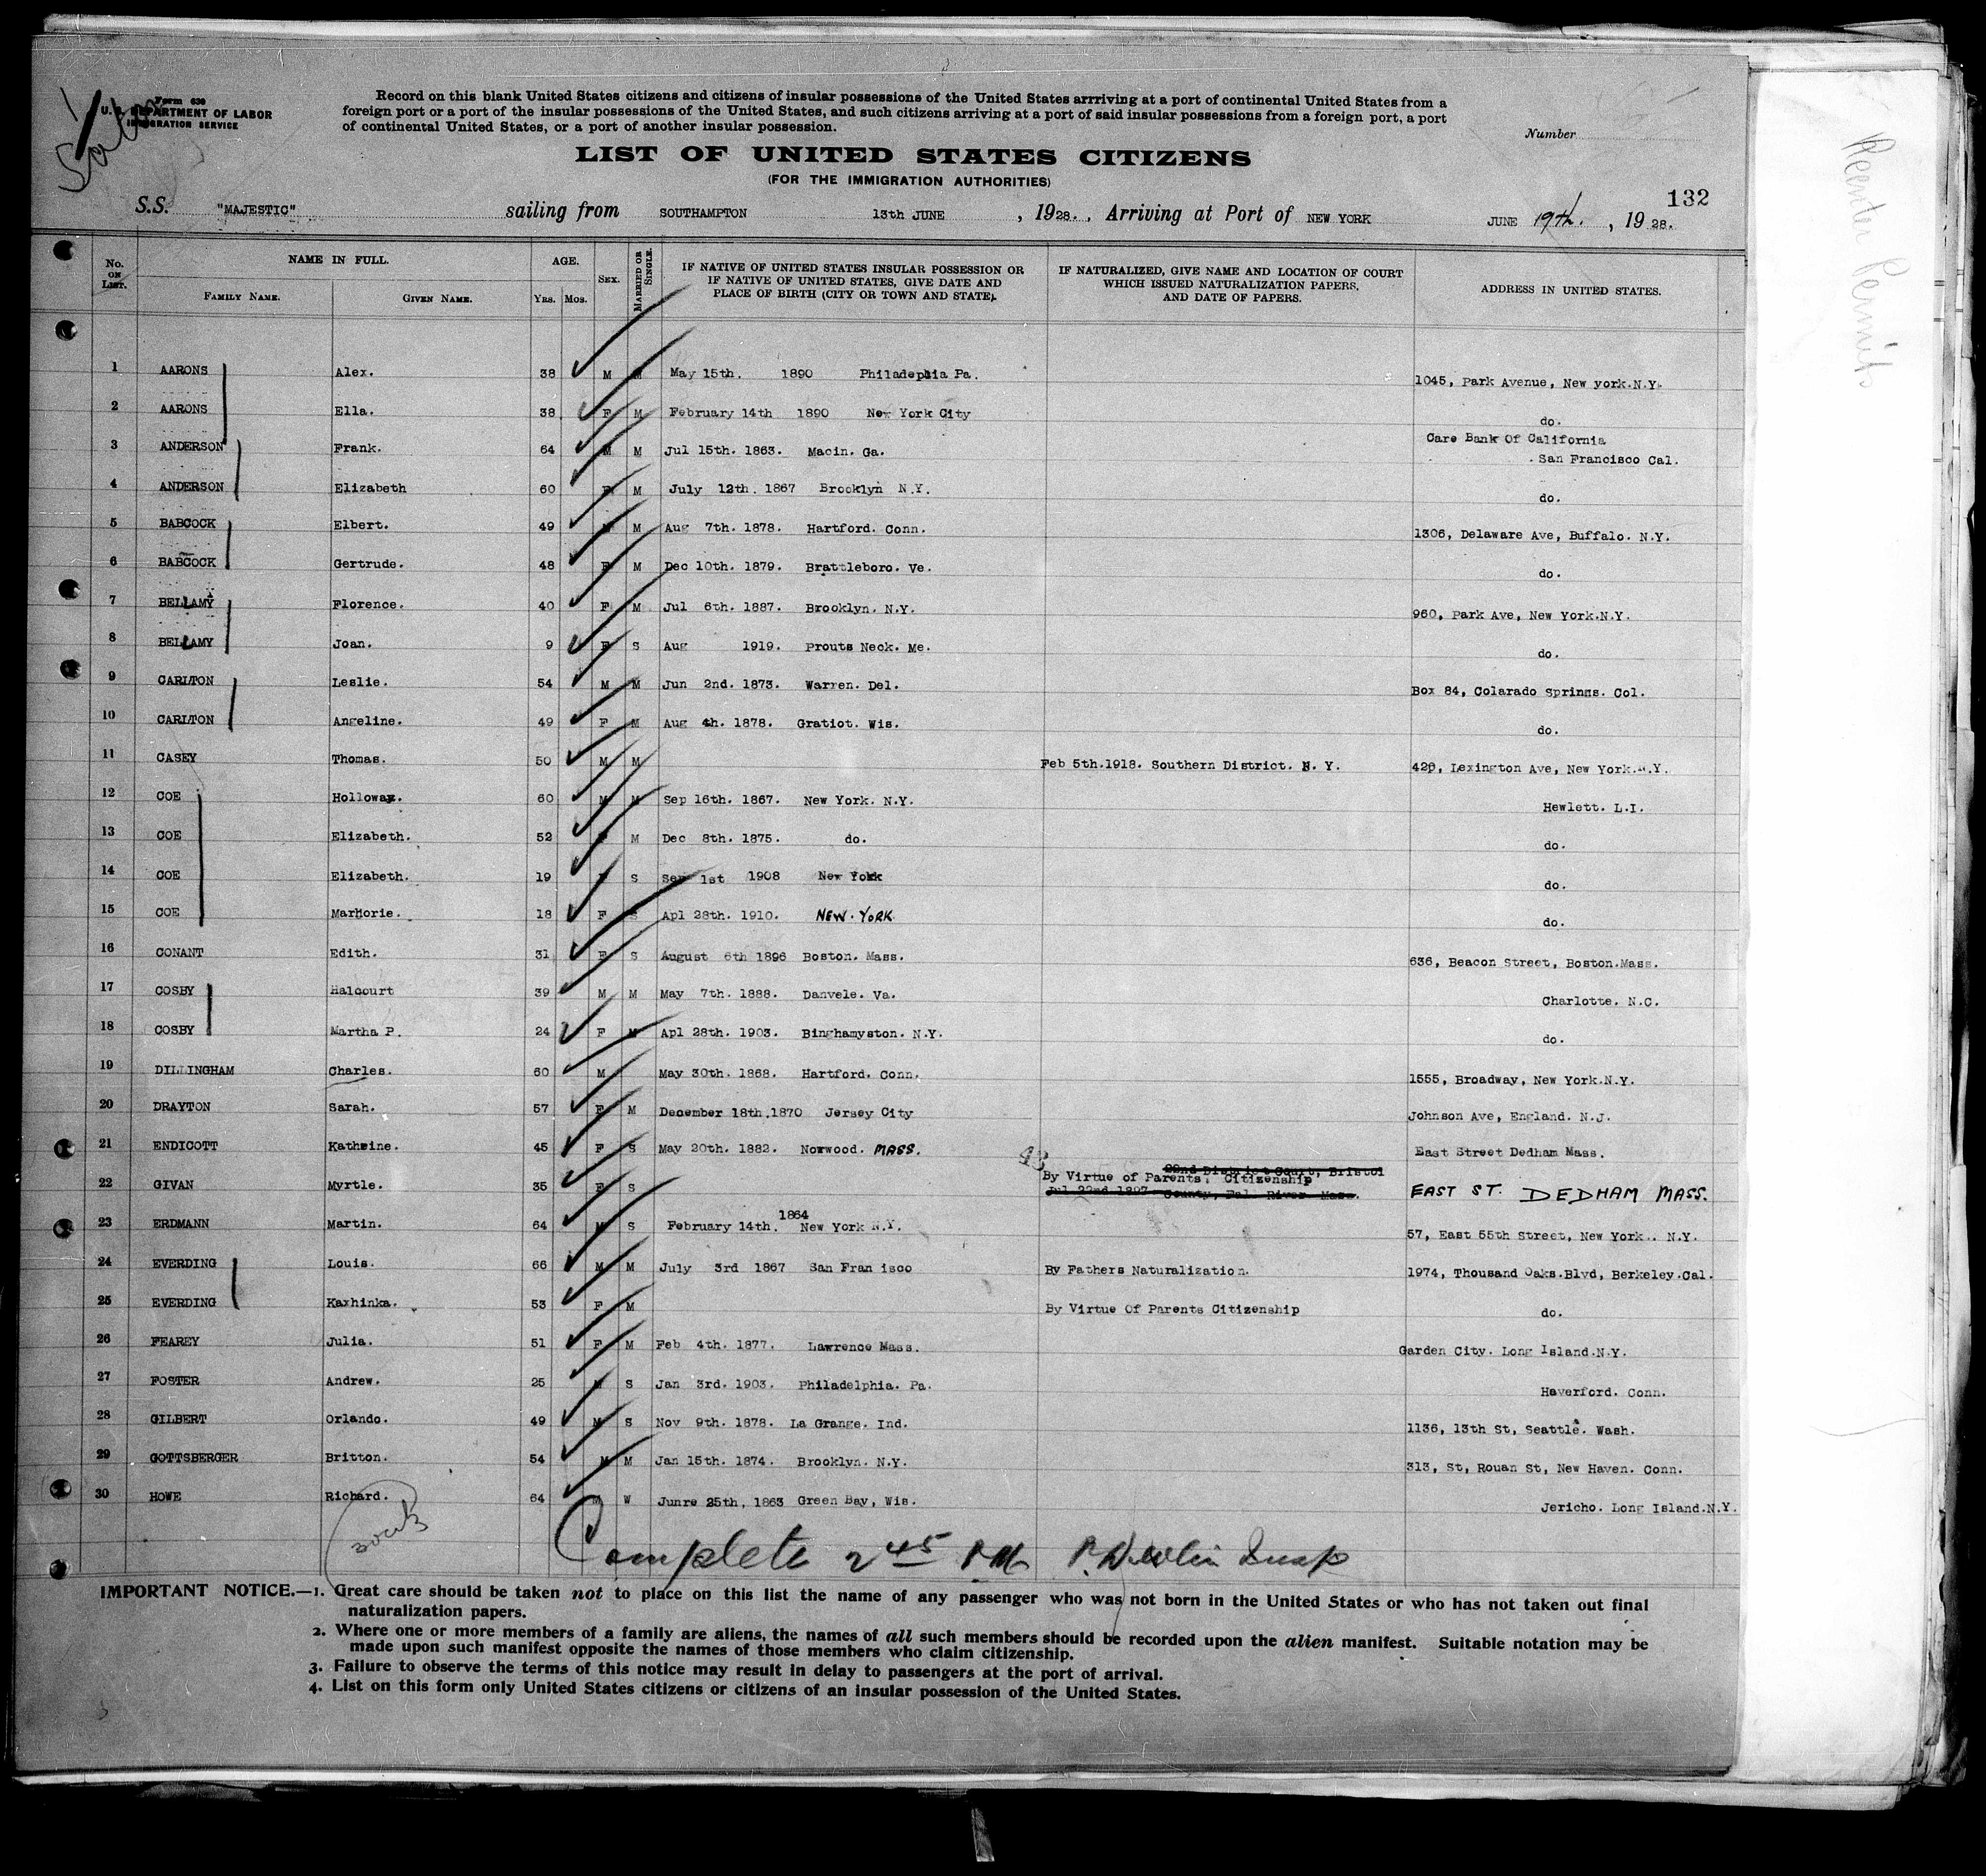 Form 630
U. S. DEPARTMENT OF LABOR
IMMIGRATION SERVICE
Record on this blank United States citizens and citizens of insular possessions of the United States arrriving at a port of continental United States from a
foreign port or a port of the insular possessions of the United States, and such citizens arriving at a port of said insular possessions from a foreign port, a port
of continental United States, or a port of another insular possession.
Number
LIST OF UNITED STATES CITIZENS
(FOR THE IMMIGRATION AUTHORITIES)
132
S.S. "MAJESTIC" sailing from SOUTHAMPTON 13th JUNE , 1928. , Arriving at Port of NEW YORK JUNE 19th. , 1928.
No. ON LIST. NAME IN FULL. FAMILY NAME. GIVEN NAME. AGE. YRS. MOS. SEX. MARRIED OR SINGLE. IF NATIVE OF UNITED STATES INSULAR POSSESSION OR IF NATIVE OF UNITED STATES, GIVE DATE AND PLACE OF BIRTH (CITY OR TOWN AND STATE). IF NATURALIZED, GIVE NAME AND LOCATION OF COURT WHICH ISSUED NATURALIZATION PAPERS, AND DATE OF PAPERS. ADDRESS IN UNITED STATES.
1 AARONS Alex. 38 M M May 15th. 1890 Philadephia Pa. 1045, Park Avenue, New york.N.Y.
2 AARONS Ella. 38 F M February 14th 1890 New York City do.
3 ANDERSON Frank. 64 M M Jul 15th. 1863. Macin. Ga. Care Bank Of California
San Francisco Cal.
4 ANDERSON Elizabeth 60 F M July 12th. 1867 Brooklyn N.Y. do.
5 BABCOCK Elbert. 49 M M Aug 7th. 1878. Hartford. Conn. 1306, Delaware Ave, Buffalo. N.Y.
6 BABCOCK Gertrude. 48 F M Dec 10th. 1879. Brattleboro. Ve. do.
7 BELLAMY Florence. 40 F M Jul 6th. 1887. Brooklyn. N.Y. 960, Park Ave, New York.N.Y.
8 BELLAMY Joan. 9 F S Aug 1919. Prouts Neck. Me. do.
9 CARLTON Leslie. 54 M M Jun 2nd. 1873. Warren. Del. Box 84, Colarado Springs. Col.
10 CARLTON Angeline. 49 F M Aug 4th. 1878. Gratiot. Wis. do.
11 CASEY Thomas. 50 M M Feb 5th.1918. Southern District. N. Y. 420, Lexington Ave, New York.N.Y.
12 COE Holloway. 60 M M Sep 16th. 1867. New York. N.Y. Hewlett. L.I.
13 COE Elizabeth. 52 F M Dec 8th. 1875. do. do.
14 COE Elizabeth. 19 F S Sep 1st 1908 New York do.
15 COE Marjorie. 18 F S Apl 28th. 1910. NEW. YORK do.
16 CONANT Edith. 31 F S August 6th 1896 Boston. Mass. 636, Beacon Street, Boston.Mass.
17 COSBY Halcourt 39 M M May 7th. 1888. Danvele. Va. Charlotte. N.C.
18 COSBY Martha P. 24 F M Apl 28th. 1903. Binghamyston. N.Y. do.
19 DILLINGHAM Charles. 60 M May 30th. 1868. Hartford. Conn. 1555, Broadway, New York.N.Y.
20 DRAYTON Sarah. 57 F M December 18th.1870 Jersey City Johnson Ave, England. N.J.
21 ENDICOTT Kathrine. 45 F S May 20th. 1882. Norwood. MASS. East Street Dedham Mass.
22 GIVAN Myrtle. 35 F S 43 By Virtue of Parents' Citizenship 22nd District Court, Bristol
Jul 22nd 1897 County, Fall River Mass. EAST ST. DEDHAM MASS.
23 ERDMANN Martin. 64 M S February 14th. 1864 New York N.Y. 57, East 55th Street, New York.. N.Y.
24 EVERDING Louis. 66 M M July 3rd 1867 San Fran isco By Fathers Naturalization. 1974, Thousand Oaks.Blvd, Berkeley.Cal.
25 EVERDING Kaxhinka. 53 F M By Virtue Of Parents Citizenship do.
26 FEAREY Julia. 51 F M Feb 4th. 1877. Lawrence Mass. Garden City. Long Island.N.Y.
27 FOSTER Andrew. 25 M S Jan 3rd. 1903. Philadelphia. Pa. Haverford. Conn.
28 GILBERT Orlando. 49 M S Nov 9th. 1878. La Grange. Ind. 1136, 13th St, Seattle. Wash.
29 GOTTSBERGER Britton. 54 M M Jan 15th. 1874. Brooklyn. N.Y. 313, St, Rouan St, New Haven. Conn.
30 HOWE Richard. 64 M W Junre 25th, 1863 Green Bay, Wis. Jericho. Long Island.N.Y.
Complete 2 45 P.M. P. Devlin Insp
IMPORTANT NOTICE.—1. Great care should be taken not to place on this list the name of any passenger who was not born in the United States or who has not taken out final
naturalization papers.
2. Where one or more members of a family are aliens, the names of all such members should be recorded upon the alien manifest. Suitable notation may be
made upon such manifest opposite the names of those members who claim citizenship.
3. Failure to observe the terms of this notice may result in delay to passengers at the port of arrival.
4. List on this form only United States citizens or citizens of an insular possession of the United States.
Reenter Permits